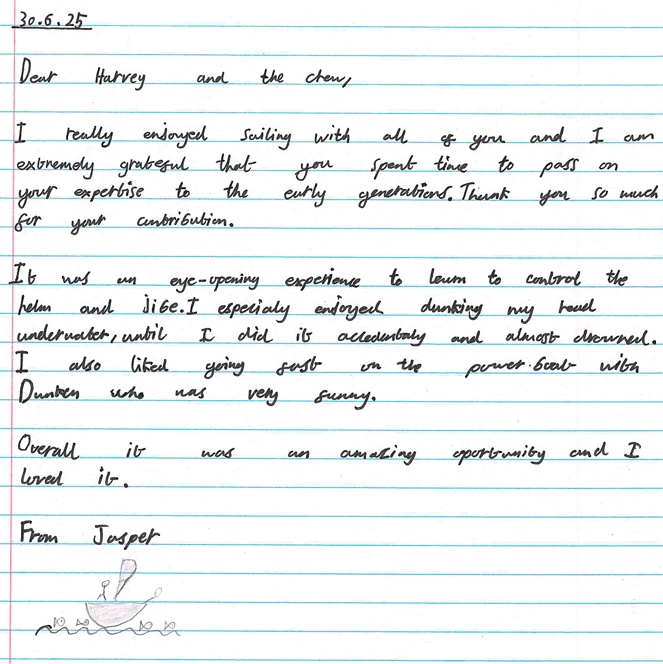 30.6.25
Dear Harvey and the chew,
I really enjoyed sailing with all of you and I am
extremely grateful that you spent time to pass on
your expertise to the early generations. Thank you so much
for your contribution.
It was an eye-opening experience to learn to control the
helm and jibe. I especialy enjoyed dunking my head
underwater, until I did it accedentaly and almost drowned.
I also liked going fast on the power-boat with
Dunken who was very funny.
Overall it was an amazing oportunity and I
loved it.
From Jasper